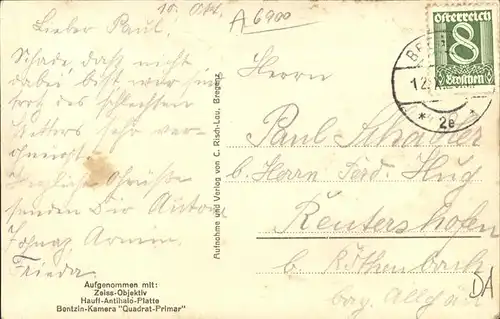 10. Okt.
A 6900
Lieber Paul!
Schade, daß nicht
dabei bist wir im
trotz des schlechten
Wetters sehr ver-
gnügt.
Herzliche Grüße
senden Dir Anton
Armin
Frieda.
Aufgenommen mit:
Zeiss-Objektiv
Hauff-Antihalo-Platte
Bentzin-Kamera "Quadrat-Primar"
Aufnahme und Verlag von C. Risch-Lau, Bregenz
österreich
8
Groschen
12.
* 2e *
Herrn
Paul
b. Herrn Ferd. Hug
Reutershofen
b. Röthenbach
bay. Allgäu
DA